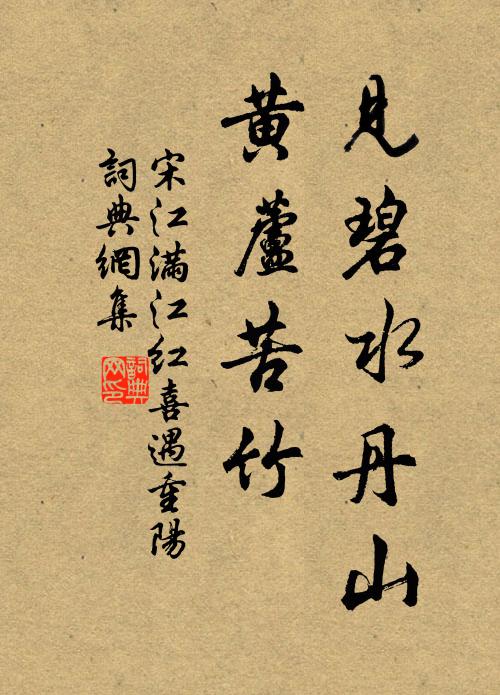 見碧水丹山
黃蘆苦竹
宋江滿江紅喜遇重陽
詞典網集
詞典
网印